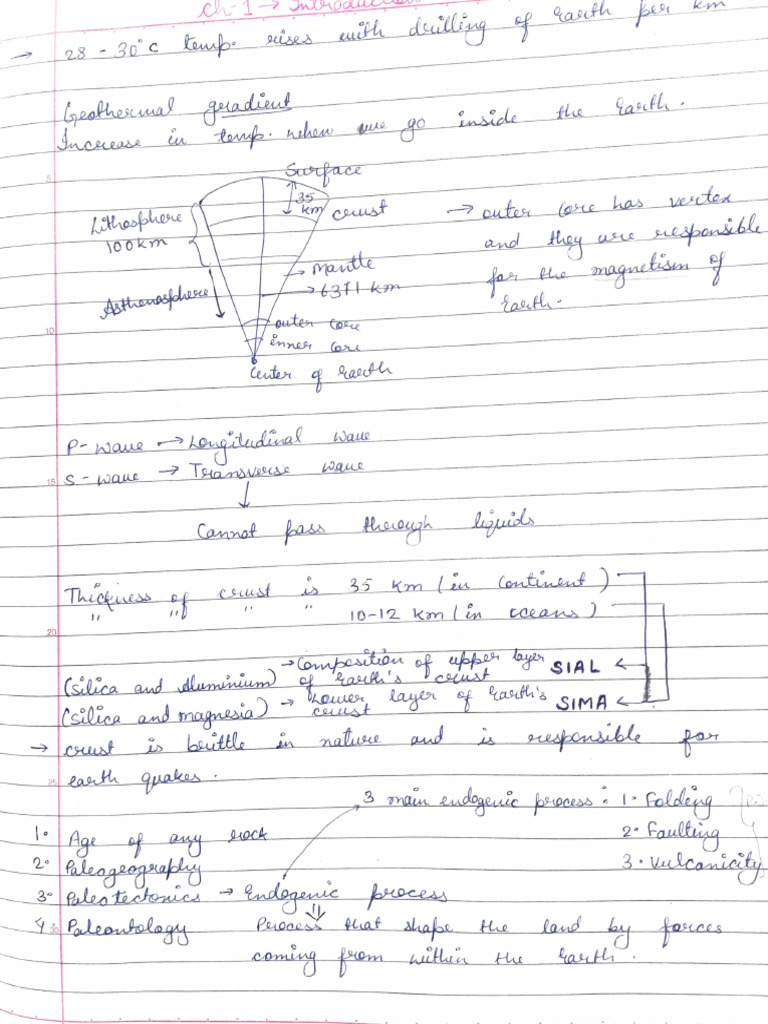 Ch-1 → Introduction
→ 28 - 30°c temp. rises with drilling of Earth per km
Geothermal gradient
Increase in temp. when we go inside the Earth.
Surface
35 km
crust
Lithosphere
100km
Mantle
6371 km
Asthenosphere
outer core
inner core
Center of Earth
→ outer core has vertex
and they are responsible
for the magnetism of
Earth.
P-wave → Longitudinal wave
S-wave → Transverse wave
↓
Cannot pass thorough liquids
Thickness of crust is 35 km (in continent)
" " " " 10-12 km (in oceans)
→ Composition of upper layer SIAL ←
(silica and Aluminium) of Earth's crust
(silica and magnesia) → Lower layer of Earth's SIMA ←
crust
→ crust is brittle in nature and is responsible for
earth quakes.
3 main endogenic process : 1. Folding
2. Faulting
3. Vulcanicity
1. Age of any rock
2. Paleogeography
3. Paleotectonics → Endogenic process
4. Paleontology Process that shape the land by forces
coming from within the Earth.